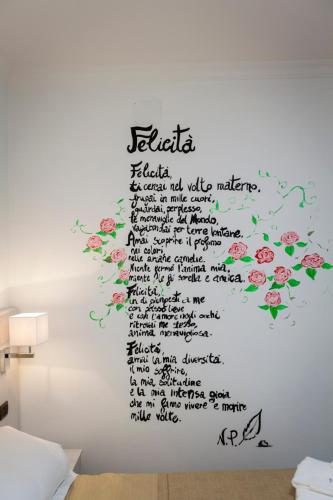 Felicità
Felicità,
ti cercai nel volto materno.
frugai in mille cuori,
guardai, perplesso,
le meraviglie del Mondo,
vagabondai per terre lontane.
Amai scoprire il profumo
nei colori
nelle anghe camelie.
Niente fermò l'anima mia,
niente che fu sorella e amica.
Felicità,
un dì giungesti a me
con passo lieve
e con l'amore negli occhi
ritrovai me stesso,
anima meravigliosa.
Felicità,
amai la mia diversità.
il mio soffrire,
la mia solitudine
e la mia intensa gioia
che mi fanno vivere e morire
mille volte.
N.P.